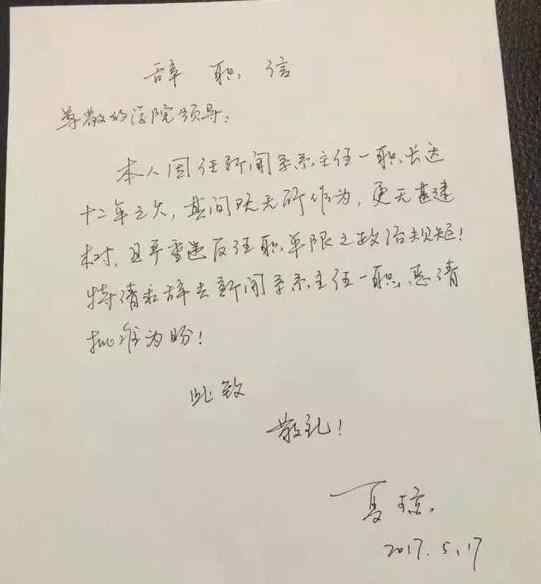 辞职信
尊敬的学院领导:
本人因任新闻系系主任一职长达
十二年之久，其间既无所作为，更无甚建
树，且严重违反任职年限之政治规矩!
特请求辞去新闻系系主任一职，恳请
批准为盼!
此致
敬礼!
夏琼
2017.5.17